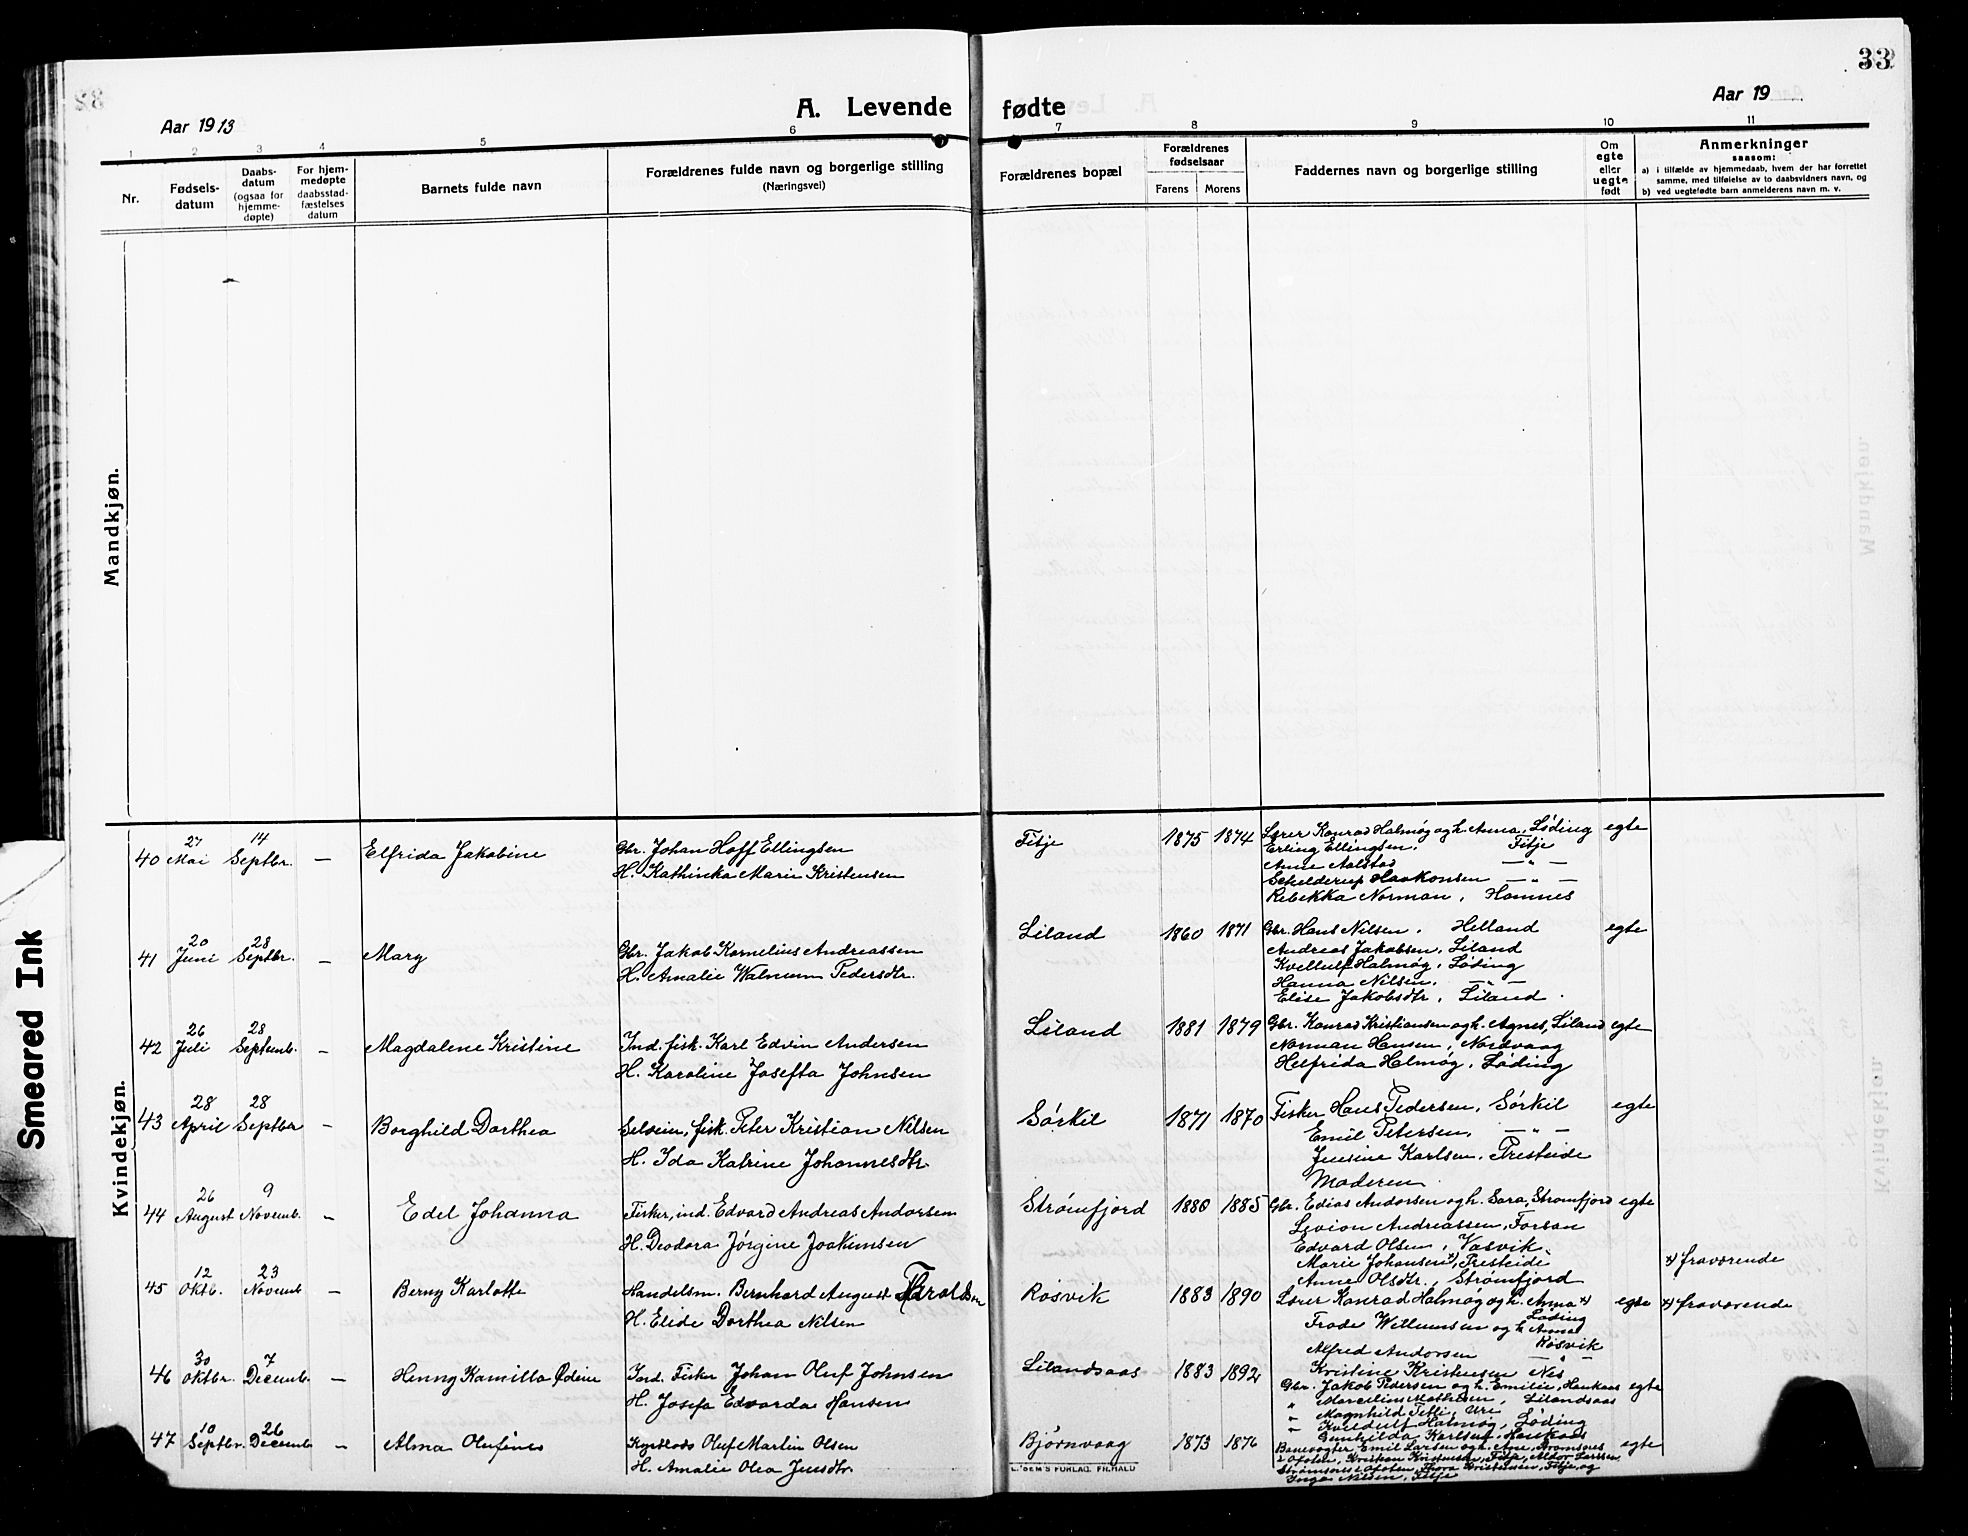 33
A. Levende fødte
Aar 1913
Aar 19
1 2 3 4 5 6 7 8 9 10 11
Nr.
Fødsels-
datum
Daabs-
datum
(ogsaa for
hjemme-
døpte)
For hjem-
medøpte
daabsstad-
fæstelses
datum
Barnets fulde navn
Forældrenes fulde navn og borgerlige stilling
(Næringsvei)
Forældrenes bopæl
Forældrenes
fødselsaar
Farens Morens
Faddernes navn og borgerlige stilling
Om
egte
eller
uegte
født
Anmerkninger
saasom:
a) i tilfælde av hjemmedaab, hvem der har forrettet
samme, med tilføielse av to daabsvidners navn, og
b) ved uegtefødte barn anmelderens navn m. v.
Mandkjøn.
Kvindekjøn.
Smeared Ink
40 27 Mai 14 Septbr. — Elfrida Jakobine
Gbr. Johan Hoff Ellingsen
H. Kathinka Marie Kristensen
Fitje 1875 1874
Lærer Konrad Halmøy og h. Anna, Løding egte
Erling Ellingsen, Fitje
Anne Aalstad — " —
Schelderup Haakonsen — " —
Rebekka Norman, Hamnes
41 20 Juni 28 Septbr. — Mary
Gbr. Jakob Kornelius Andreassen
H. Amalie Walnum Pedersdtr.
Liland 1860 1871
Gbr. Hans Nilsen, Helland egte
Andreas Jakobsen, Liland
Kveldulf Halmøy, Løding
Hanna Nilsen, — " —
Elise Jakobsdtr, Liland.
42 26 Juli 28 Septemb. — Magdalene Kristine
Ind. fisk. Karl Edvin Andersen
H. Karoline Josefta Johnsen
Liland 1881 1879
Gbr. Konrad Kristiansen og h. Agnes, Liland egte
Norman Hansen, Nordvaag
Helfrida Halmøy, Løding
43 28 April 28 Septbr — Borghild Dorthea
Selveier, fisk. Peter Kristian Nilsen
H. Ida Katrine Johannesdtr.
Sørkil 1871 1870
Fisker Hans Pedersen, Sørkil egte
Emil Petersen, — " —
Jensine Karlsen, Presteide
Moderen
44 26 August 9 Novemb. — Edel Johanna
Fisker, ind. Edvard Andreas Andorsen
H. Deodora Jørgine Joakimsen
Strømfjord 1880 1885
Gbr. Edias Andorsen og h. Sara, Strømfjord egte
Levion Andreassen, Forsan
Edvard Olsen, Vasvik
Marie Johansen x), Presteide
Anne Olsdtr., Strømfjord
x) fraværende
45 12 Oktb. 23 Novemb — Berny Karlotte
Handelsm. Bernhard August
H. Elide Dorthea Nilsen
Røsvik 1883 1890
Lærer Konrad Halmøy og h. Anna x) egte
Løding
Frode Willumsen og h. Anna
Røsvik
Alfred Andorsen — " —
Kristine Kristensen Nes
x) fraværende
46 30 Oktbr. 7 Decemb. — Henny Kamilla Ødine
Ind. Fisker Johan Oluf Johnsen
H. Josefa Edvarda Hansen
Lilandsaas 1883 1892
Gbr. Jakob Pedersen og h. Emilie, Haukaas egte
" Marcelius Mathisen, Lilandsaas
" Magnhild Fitli, Uri
" Kveldulf Halmøy, Løding
Gunhilda Karlsen, Haukaas
47 10 Septbr. 26 Decemb — Alma Olufine
Oluf Martin Olsen
H. Amalie Olea Jensdtr.
Bjørnvaag 1873 1876
Banevogter Emil Larsen og h. Ane, Strømsnes egte
i Ofoten, Kristian Kristensen, Fitje, Aldor Larssen
Strømsnes i Ofoten, Thora Kristensen, Fitje, og
Inga Nilsen, Fitje
E. SEM'S FORLAG, FR.HALD